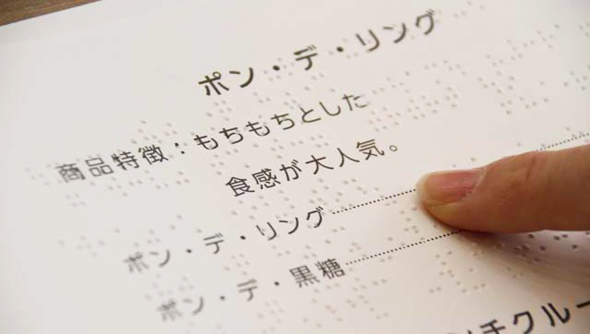 ポン・デ・リング
商品特徴：もちもちとした
食感が大人気。
ポン・デ・リング
ポン・デ・黒糖
チクルー